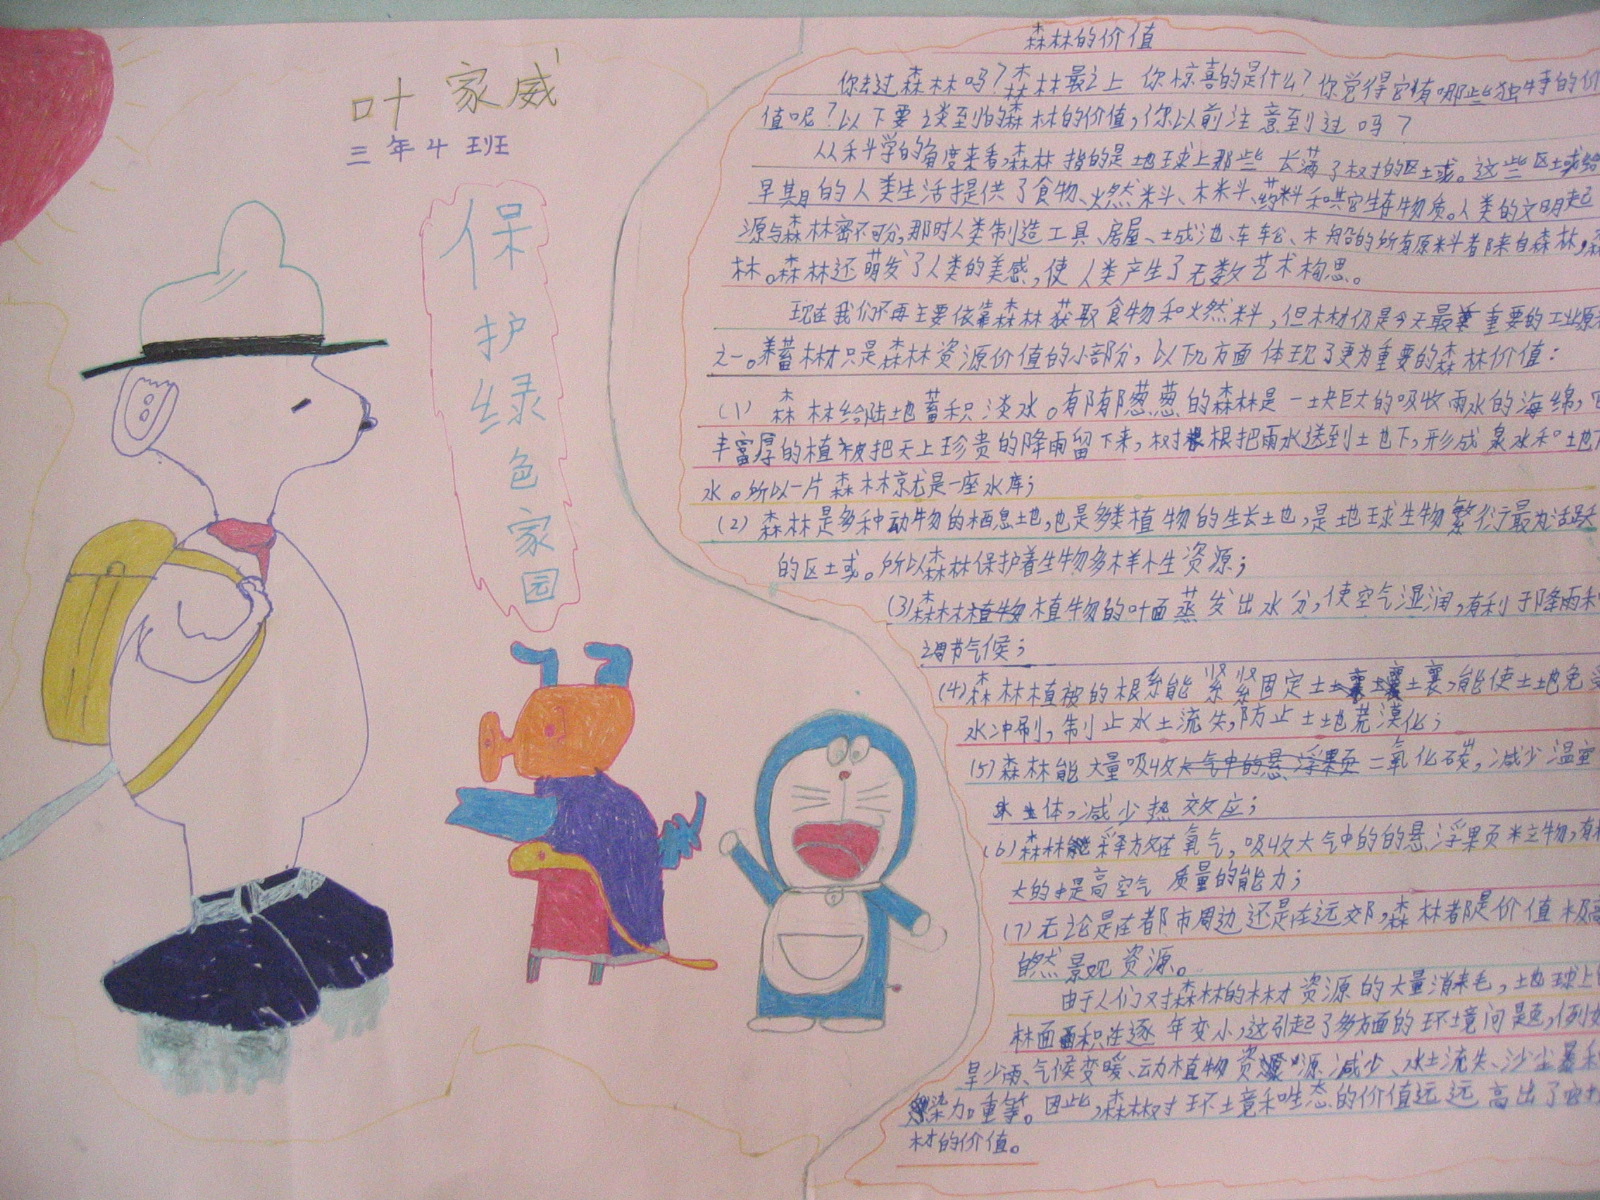 叶家威
三年4班
保护绿色家园
森林的价值
你去过森林吗?森林最之上你惊喜的是什么?你觉得它有哪些独特的价
值呢?以下要谈到的森林的价值,你以前注意到过吗?
从科学的角度来看,森林指的是地球上那些长满了树的区域。这些区域给
早期的人类生活提供了食物、燃料、木料、药料和其它生存物质。人类的文明起
源与森林密不可分,那时人类制造工具、房屋、城池、车轮、木船的所有原料都来自森林,森
林。森林还萌发了人类的美感,使人类产生了无数艺术构思。
现在我们不再主要依靠森林获取食物和燃料,但木材仍是今天最重要的工业原
之一。养蓄木材只是森林资源价值的小部分,以下几方面体现了更为重要的森林价值:
(1)森林给陆地蓄积淡水。郁郁葱葱的森林是一块巨大的吸收雨水的海绵,它
丰富厚的植被把天上珍贵的降雨留下来,树根根把雨水送到土地下,形成泉水和地下
水。所以一片森林就是一座水库;
(2)森林是多种动物的栖息地,也是多类植物的生长地,是地球生物繁衍最为活跃
的区域。所以森林保护着生物多样性资源;
(3)森林植物植物的叶面蒸发出水分,使空气湿润,有利于降雨和
调节气候;
(4)森林植被的根系能紧紧固定土壤,能使土地免受
水冲刷,制止水土流失,防止土地荒漠化;
(5)森林能大量吸收大气中的悬浮颗二氧化碳,减少温室
体,减少热效应;
(6)森林能释放氧气,吸收大气中的的悬浮颗粒物,有极
大的提高空气质量的能力;
(7)无论是在都市周边还是在远郊,森林都是价值极高
的自然景观资源。
由于人们对森林的木材资源的大量消耗,地球上的
林面面积在逐年变小,这引起了多方面的环境问题,例如
旱少雨、气候变暖、动植物资源减少、水土流失、沙尘暴和
染加重等。因此,森林对环境和生态的价值远远高出了它
材的价值。